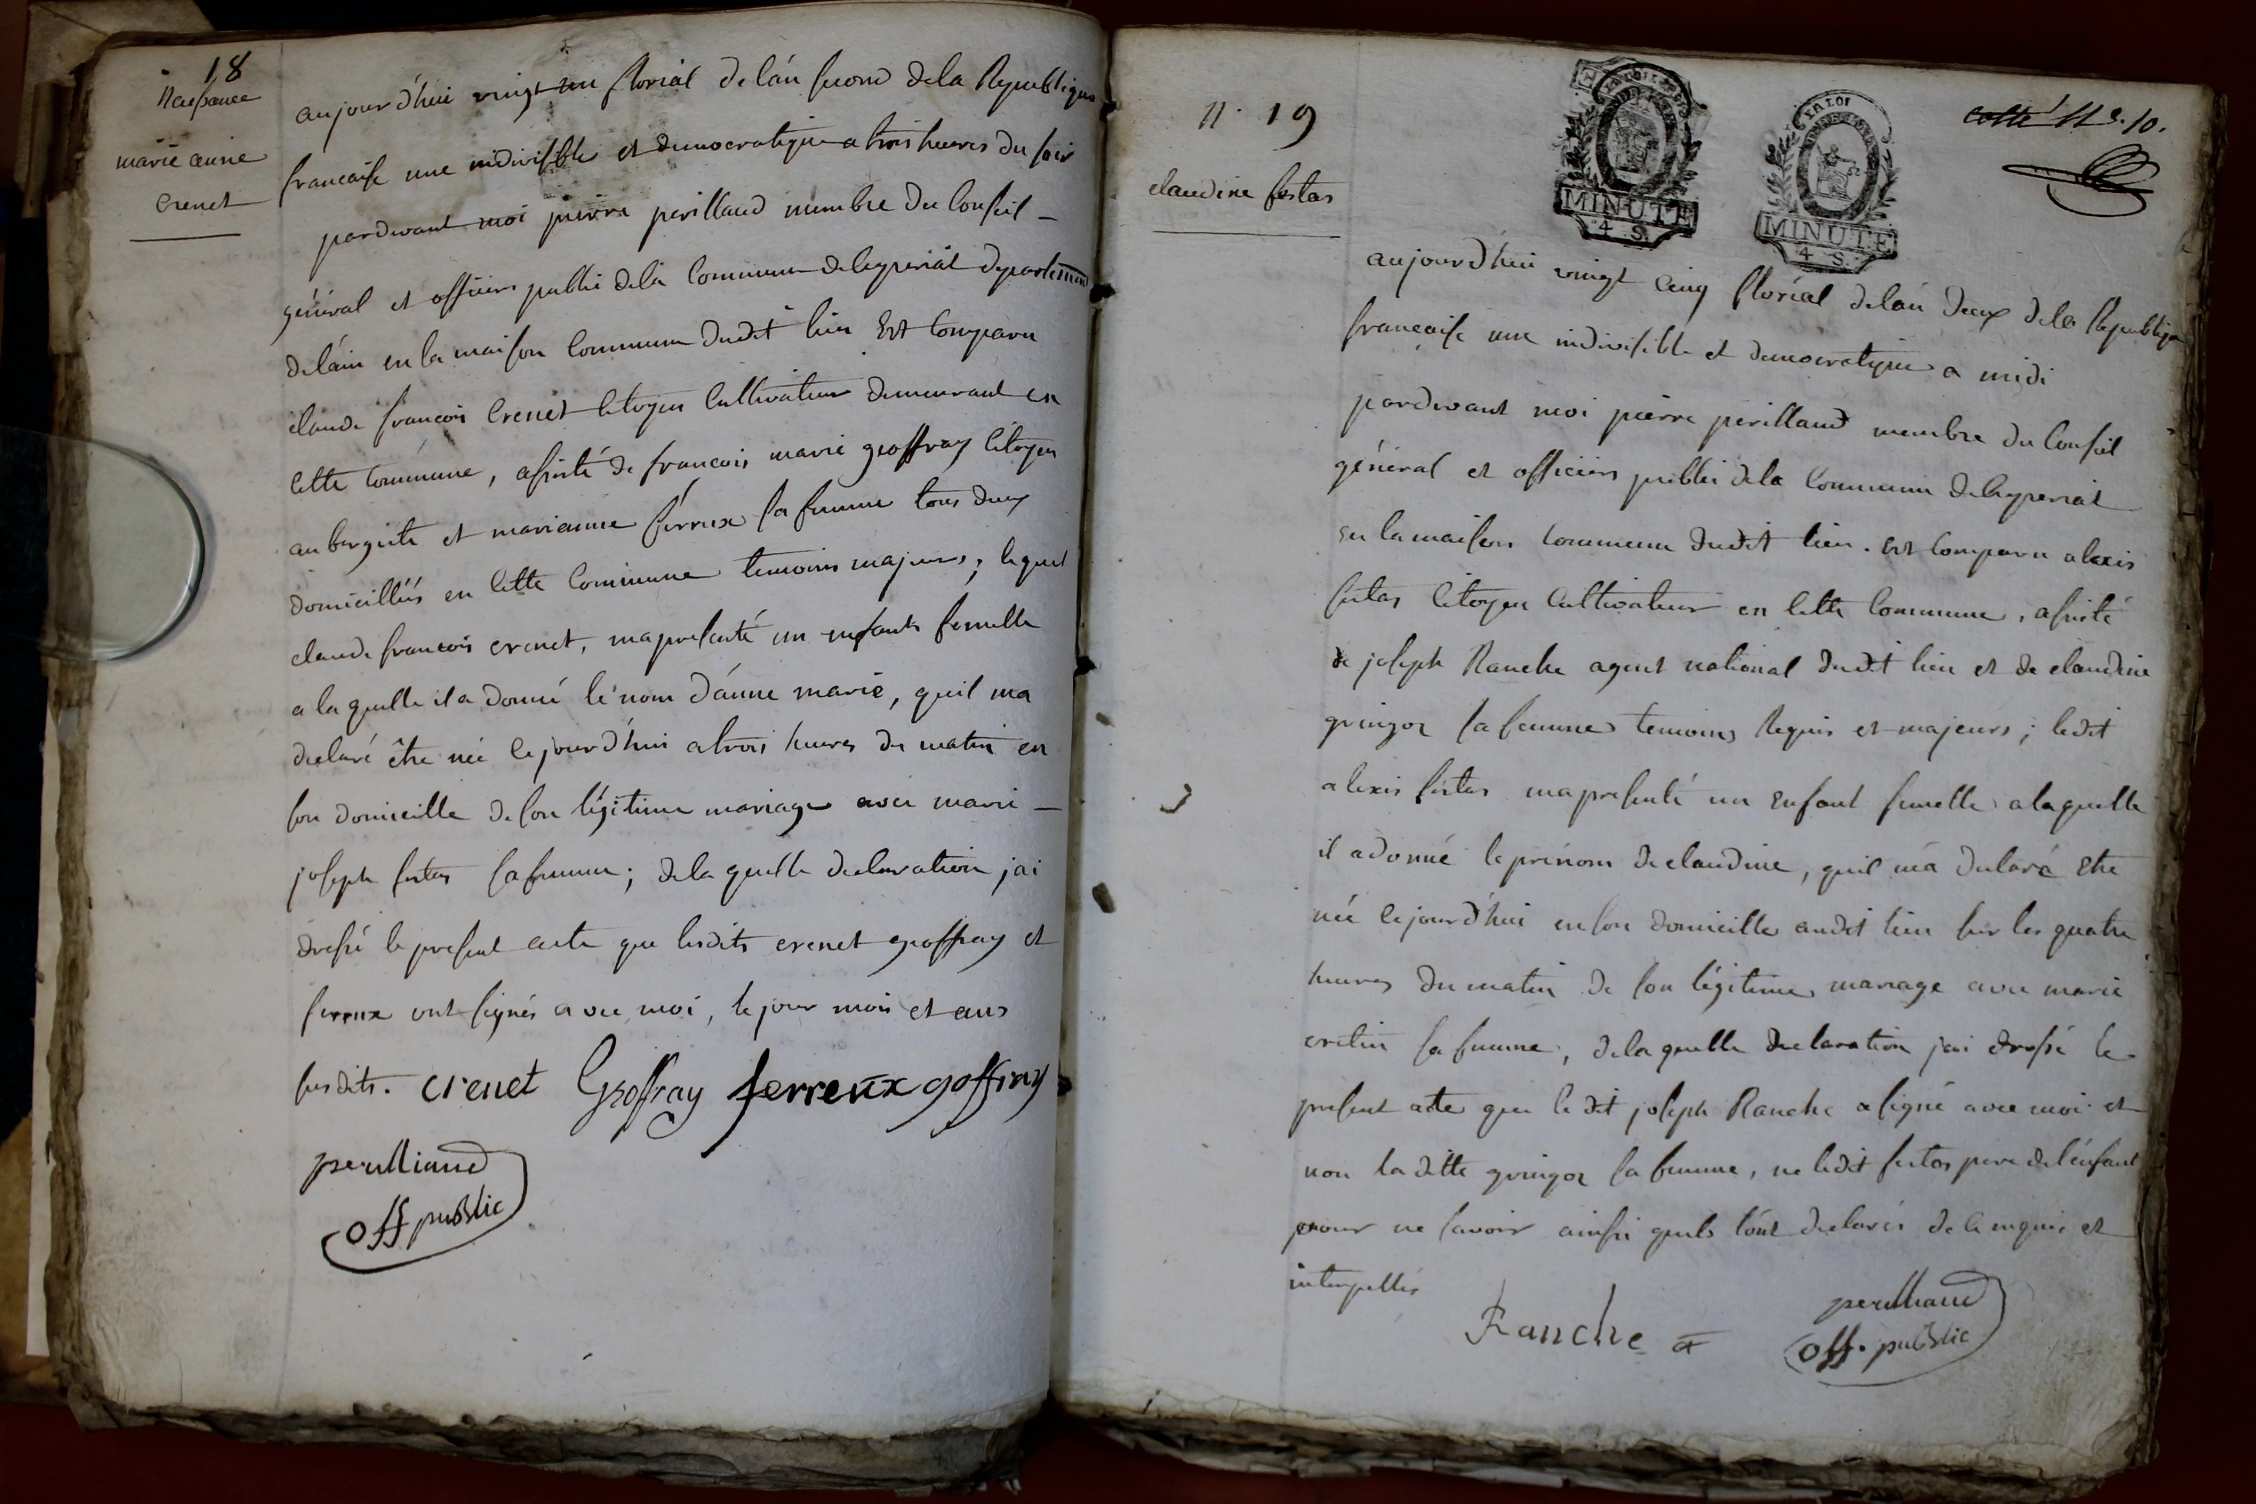 18
Naissance
marie anne
crenet
aujourd'hui vingt un floréal de l'án second de la Republique
francaise une indivisible et democratique a trois heures du soir
pardevant moi pierre perillaud membre du Conseil
général et officiers public de la Commune de leyperiat departement
de láin en la maison Commune dudit lieu Est Comparu
claude francois Crenet Citoyen Cultivateur demeurant en
Cette Commune, assisté de francois marie groffray Citoyen
aubergiste et marianne ferreux sa femme tous deux
domicilliés en Cette Commune temoins majeurs; lequel
claude francois crenet, ma presenté un enfant femelle
a la quelle il a donné le nom dánne marie, quil ma
declaré être née cejourd'hui a trois heures du matin en
son domicille de son légitime mariage avec marie
joseph festas sa femme; de la quelle declaration jai
dressé le present acte que lesdits crenet groffray et
ferreux ont signés avec moi, le jour mois et ans
susdits. crenet Groffray ferreux goffray
perilliaud
off public
N. 19
claudine festas
LA LOI
MINUTE
4 S.
LA LOI
MINUTE
4 S.
cotté Ne. 10.
aujourd'hui vingt Cinq floréal de lán deux de la Republique
francaise une indivisible et democratique a midi
pardevant moi pierre perillaud membre du Conseil
général et officiers public de la Commune de leyperiat
en la maison Commune dudit lieu. est Comparu alexis
festas Citoyen Cultivateur en Cette Commune, assisté
de joseph Ranche agent national dudit lieu et de claudine
gringoz sa femme temoins Requis et majeurs; ledit
alexis festas ma presenté un Enfant femelle a la quelle
il a donné le prénom de claudine, quil má declaré Etre
née cejourd'hui en son domicille audit lieu sur les quatre
heures du matin de son légitime mariage avec marie
cretin sa femme, de la quelle declaration jai dressé le
present acte que le dit joseph Ranche a signé avec moi et
non la ditte gringoz sa femme, ne ledit festas pere de lénfant
pour ne savoir ainsi quils lónt declarés de ce enquis et
interpellés
Ranche
perilliaud
off. public